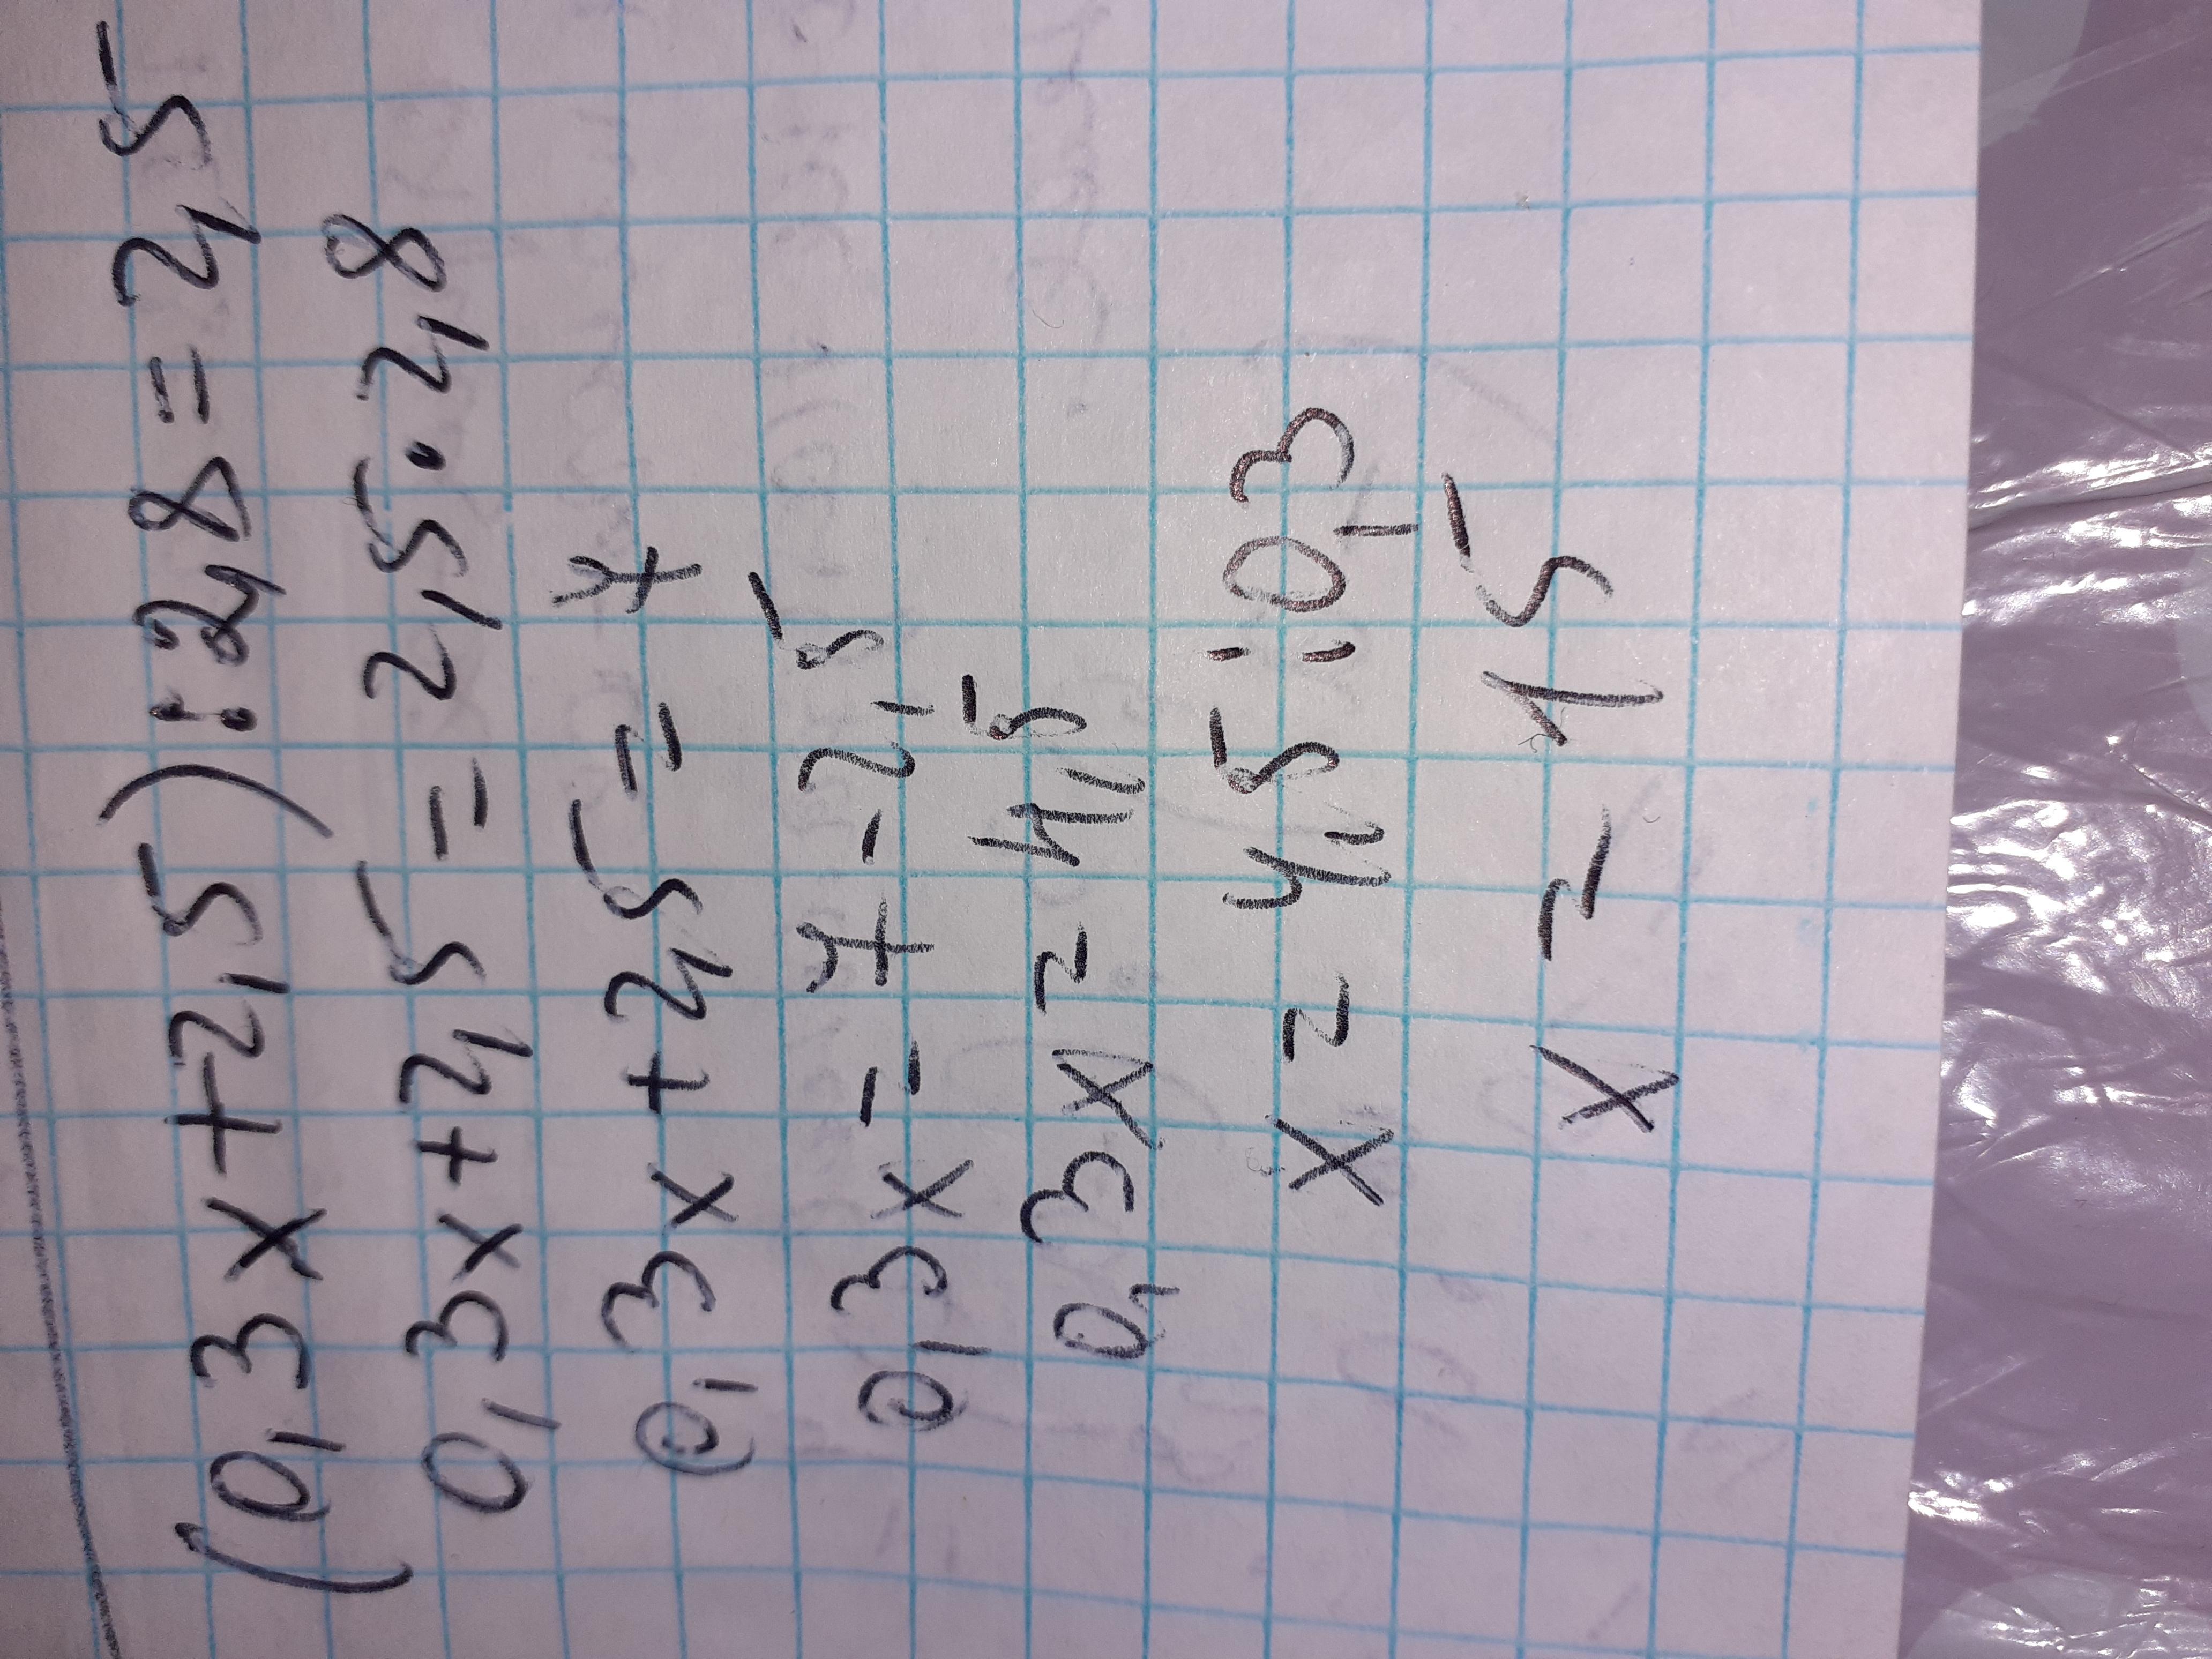 (0,3x+2,5):2,8=2,5
0,3x+2,5=2,5·2,8
0,3x+2,5=7
0,3x=7-2,5
0,3x=4,5
x=4,5:0,3
x=15